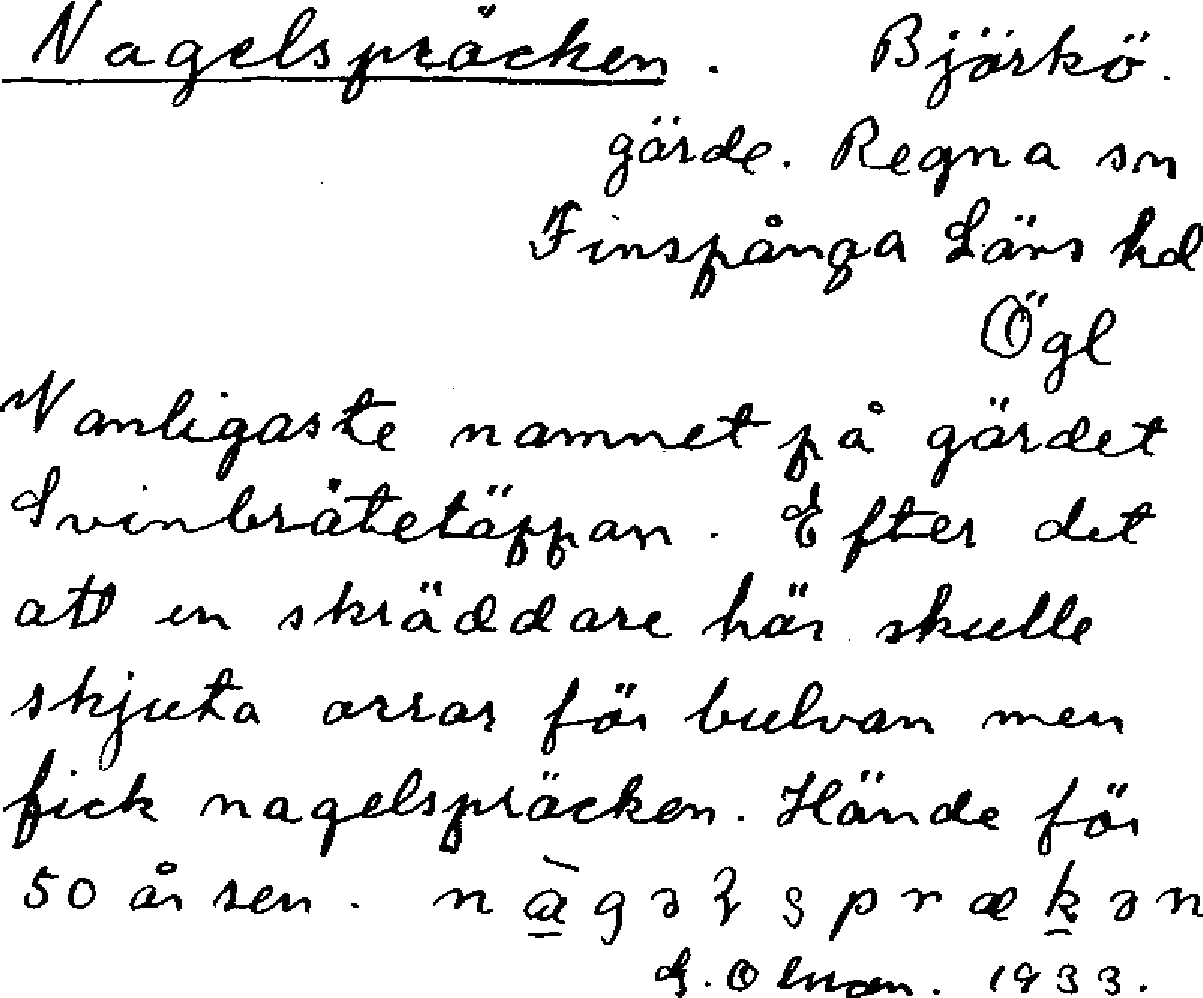 Nagelspräcken. Björkö.
gärde. Regna sn
Finspånga Läns hd
Ögl
Vanligaste namnet på gärdet
Svinbråtetäppan. Efter det
att en skräddare här skulle
skjuta orrar för bulvan men
fick nagelspräcken. Hände för
50 år sen.
G. 1933.